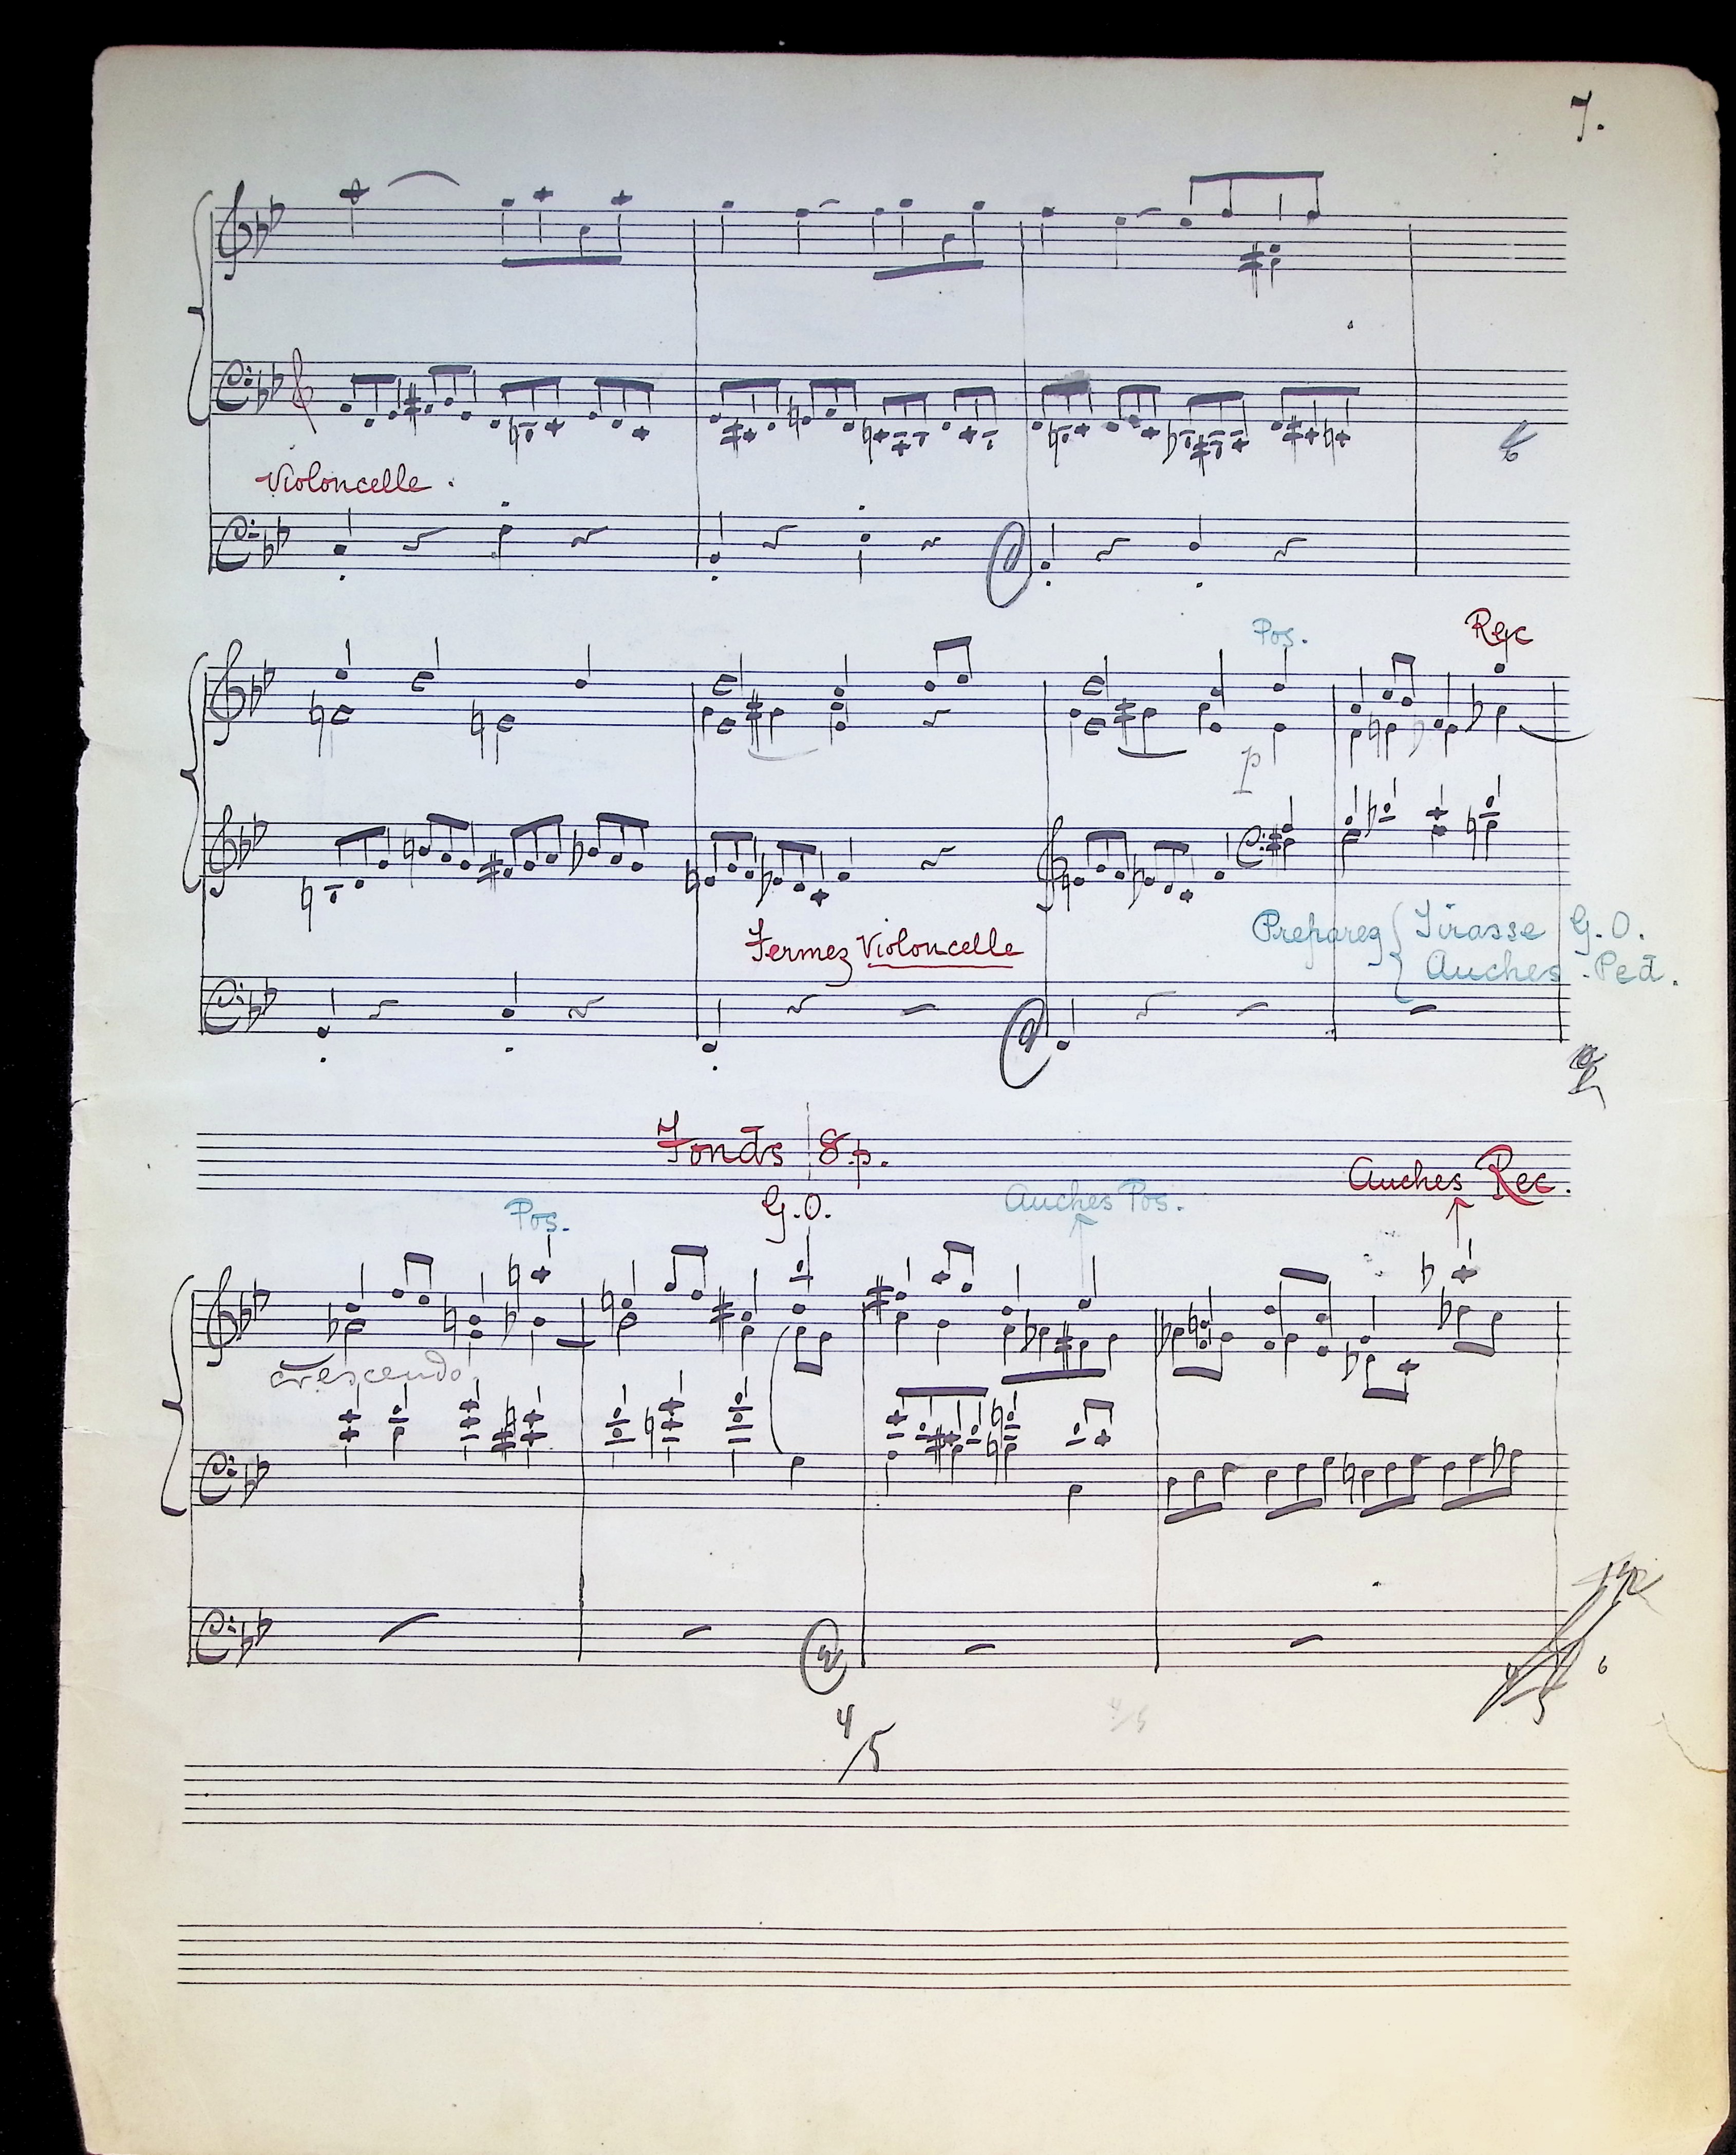 7.
Violoncelle.
Pos. Rec
p
Fermez Violoncelle
Preparez { Tirasse G.O.
Anches Ped.
Fonds 8 p.
Anches Rec.
Pos. G.O. Anches Pos.
crescendo
6
4/5
4/5
5